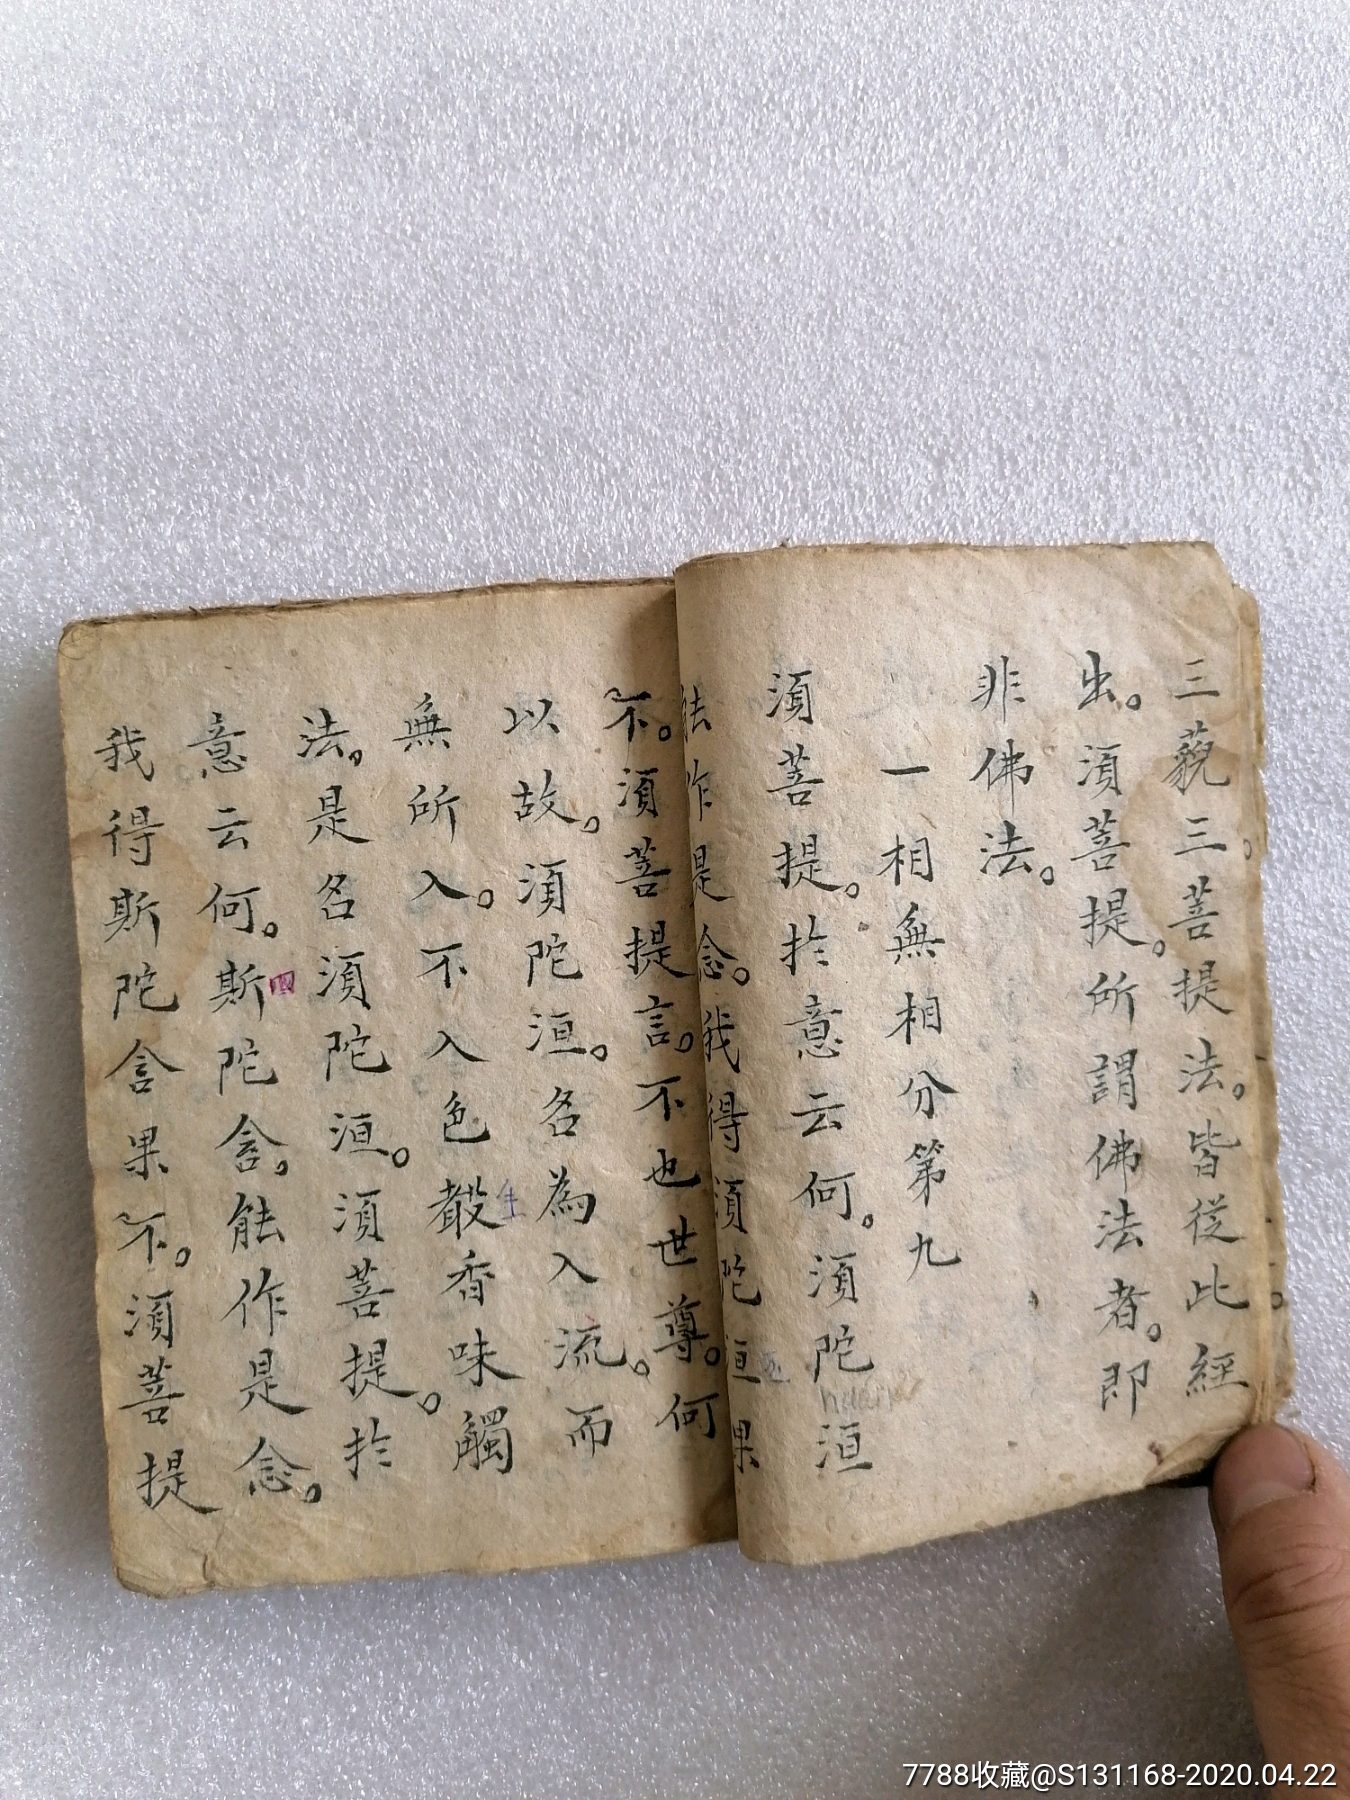 三藐三菩提法。皆從此經
出。須菩提。所謂佛法者。即
非佛法。
一相無相分第九
須菩提。扵意云何。須陀洹
能作是念。我得須陀洹果
不。須菩提言。不也世尊。何
以故。須陀洹。名為入流。而
無所入。不入色聲香味觸
法。是名須陀洹。須菩提。扵
意云何。斯陀含。能作是念。
我得斯陀含果不。須菩提
huan
7788收藏@S131168-2020.04.22